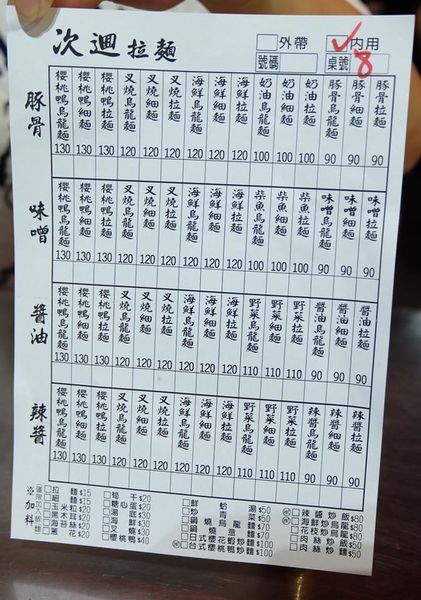 次週拉麵
外帶 內用
號碼 桌號 8
豚骨
櫻桃鴨烏龍麵 櫻桃鴨細麵 櫻桃鴨拉麵 叉燒烏龍麵 叉燒細麵 叉燒拉麵 海鮮烏龍麵 海鮮細麵 海鮮拉麵 奶油烏龍麵 奶油細麵 奶油拉麵 豚骨烏龍麵 豚骨細麵 豚骨拉麵
130 130 130 120 120 120 120 120 120 100 100 100 90 90 90
味噌
櫻桃鴨烏龍麵 櫻桃鴨細麵 櫻桃鴨拉麵 叉燒烏龍麵 叉燒細麵 叉燒拉麵 海鮮烏龍麵 海鮮細麵 海鮮拉麵 柴魚烏龍麵 柴魚細麵 柴魚拉麵 味噌烏龍麵 味噌細麵 味噌拉麵
130 130 130 120 120 120 120 120 120 100 100 100 90 90 90
醬油
櫻桃鴨烏龍麵 櫻桃鴨細麵 櫻桃鴨拉麵 叉燒烏龍麵 叉燒細麵 叉燒拉麵 海鮮烏龍麵 海鮮細麵 海鮮拉麵 野菜烏龍麵 野菜細麵 野菜拉麵 醬油烏龍麵 醬油細麵 醬油拉麵
130 130 130 120 120 120 120 120 120 110 110 110 90 90 90
辣醬
櫻桃鴨烏龍麵 櫻桃鴨細麵 櫻桃鴨拉麵 叉燒烏龍麵 叉燒細麵 叉燒拉麵 海鮮烏龍麵 海鮮細麵 海鮮拉麵 野菜烏龍麵 野菜細麵 野菜拉麵 辣醬烏龍麵 辣醬細麵 辣醬拉麵
130 130 130 120 120 120 120 120 120 110 110 110 90 90 90
※加料
拉麵$15
細麵$15
玉米粒$20
黑木耳$20
海苔絲$20
蔥花$20
筍干$20
糖心蛋$20
湯底$30
海鮮$30
叉燒$30
櫻桃鴨$40
鮮蛤湯$50
炒青菜$50
鍋燒烏龍$70
鍋燒意麵$70
日式櫻花蝦炒麵$100
台式櫻桃鴨炒麵$100
辣醬炒飯$80
海鮮炒烏龍$80
花枝烏龍$80
肉絲炒飯$50
肉絲炒麵$50